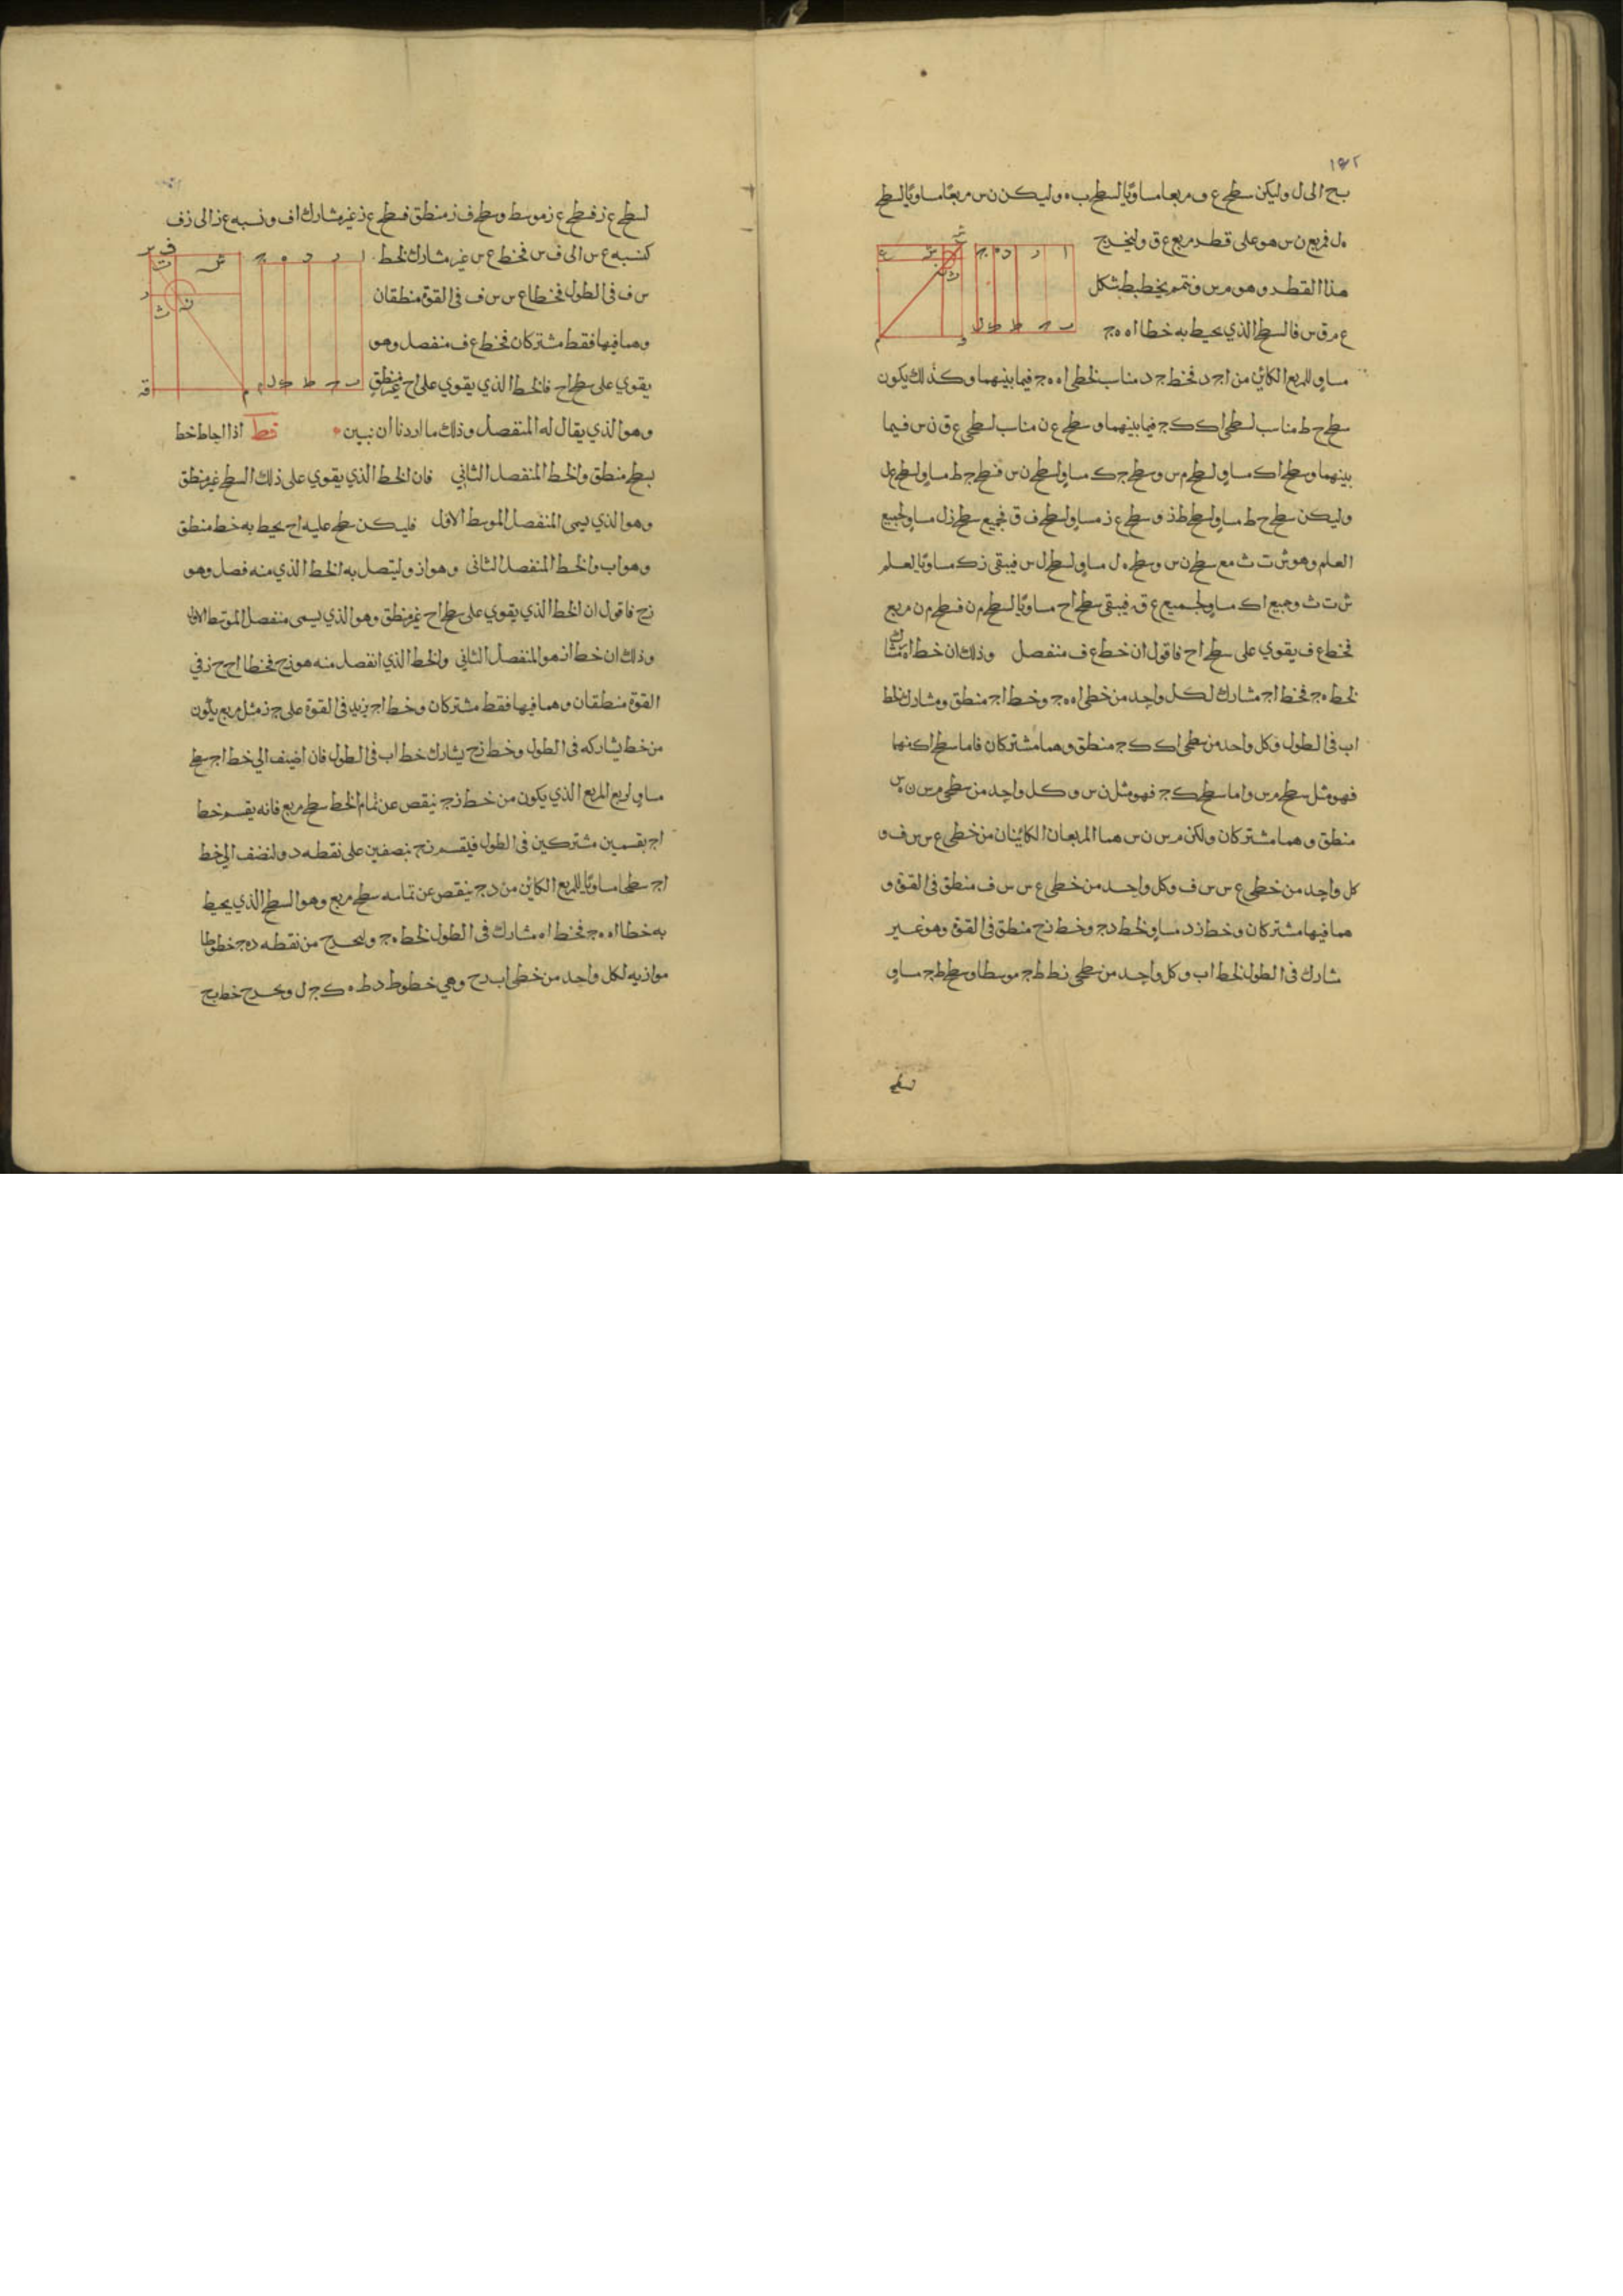 ١٤٢
بح الى ل وليكن سطح ع ف مربعا مساويا لسطح ب ه وليكن ن س مربعا مساويا لسطح
ه ل فمربع ن س هو على قطر مربع ع ق وليخرج
هذا القطر وهو م س ونتمم بخطيط شكل
ع م ق س فالسطح الذي يحيط به خطا ا ه ه ج
مساو للمربع الكائن من ا ج د فخط ج د مناسب لخطي ا ه ه ج فيما بينهما وكذلك يكون
سطح ح ط مناسب لسطحي اك ك ج فيما بينهما و سطح ع ن مناسب لسطحي ع ق ن س فيما
بينهما وسطح اك مساو لسطح م س وسطح ج ك مساو لسطح ن س فسطح ج ط مساو لسطح ع ل
وليكن سطح ح ط مساو لسطح ط ذ و سطح ع ز مساو لسطح ف ق فجميع سطح ز ل مساو لجميع
العلم وهو ش ت ث مع سطح ن س وسطح ه ل مساو لسطح ل س فيبقى ز ك مساويا لعلم
ش ت ث وجميع اك مساو لجميع ع ق فيبقى سطح اح مساويا لسطح م ن فسطح م ن مربع
فخط ع ف يقوي على سطح اح فاقول ان خط ع ف منفصل وذلك ان خط اه مشارك
لخط ه ج فخط اج مشارك لكل واحد من خطي اه ه ج وخط اج منطق ومشارك لخط
اب في الطول وكل واحد من سطحي اك ك ج منطق وهما مشتركان فاما سطح اك منهما
فهو مثل سطح م س واما سطح ك ج فهو مثل ن س وكل واحد من سطحي م س ن س
منطق وهما مشتركان ولكن م س ن س هما المربعان الكائنان من خطي ع س س ف و
كل واحد من خطي ع س س ف وكل واحد من خطي ع س س ف منطق في القوة و
هما فيها مشتركان وخط ز د مساو لخط د ج وخط ز ج منطق في القوة وهو غير
مشارك في الطول لخط اب وكل واحد من سطحي ز ط ط ج موسطا وسطح ط ج مساو
لسطح
لسطح ع ز فسطح ع ز موسط وسطح ف ز منطق فسطح ع ز غير مشارك اف ونسبه ع ز الى ز ف
كنسبه ع س الى ف س فخط ع س غير مشارك لخط
س ف في الطول فخطا ع س س ف في القوة منطقان
وهما فيها فقط مشتركان فخط ع ف منفصل وهو
يقوي على سطح اح فالخط الذي يقوي على اح غير منطق
وهو الذي يقال له المنفصل وذلك ما اردنا ان نبين قط اذا احاط خط
بسطح منطق والخط المنفصل الثاني فان الخط الذي يقوي على ذلك السطح غير منطق
وهو الذي يسمى المنفصل الموسط الاول فليكن سطح عليه اح يحيط به خط منطق
وهو اب والخط المنفصل الثاني وهو از وليتصل به الخط الذي منه فصل وهو
زج فاقول ان الخط الذي يقوي على سطح اح غير منطق وهو الذي يسمى منفصل الموسط الاول
وذلك ان خط از هو المنفصل الثاني والخط الذي انفصل منه هو زج فخطا اج ج ز في
القوة منطقان وهما فيها فقط مشتركان وخط اج يزيد في القوة على ج ز مثل مربع يكون
من خط يشاركه في الطول وخط زج يشارك خط اب في الطول فان اضيف الي خط اج سطح
مساو لربع المربع الذي يكون من خط زج ينقص عن تمام الخط سطح مربع فانه يقسم خط
اج بقسمين مشتركين في الطول فيقسم زج بنصفين على نقطه د ولنضف الي خط
اج سطحا مساويا للمربع الكائن من د ج ينقص عن تمامه سطح مربع وهو السطح الذي يحيط
به خطا اه ه ج فخط اه مشارك في الطول لخط ه ج وليخرج من نقطه د ه ج خطوطا
موازيه لكل واحد من خطي اب زح وهي خطوط د ط ه ك ج ل ويخرج خط بح